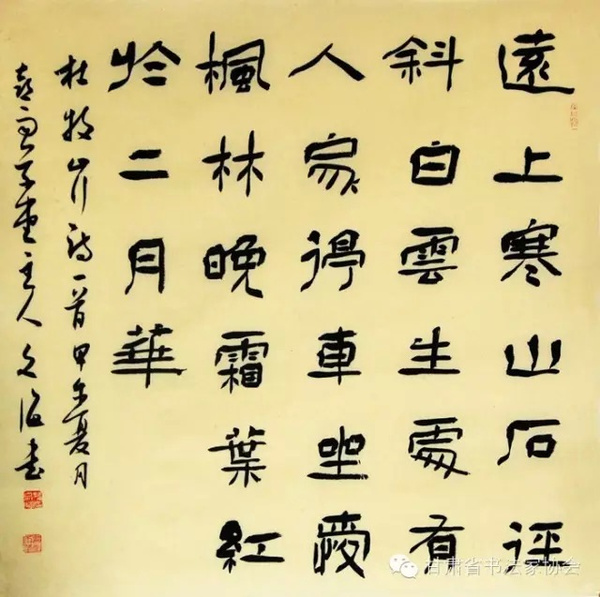 遠上寒山石徑
斜白雲生處有
人家停車坐愛
楓林晚霜葉紅
於二月華
杜牧山行詩一首甲午夏月
堂主人海書
甘肃省书法家协会